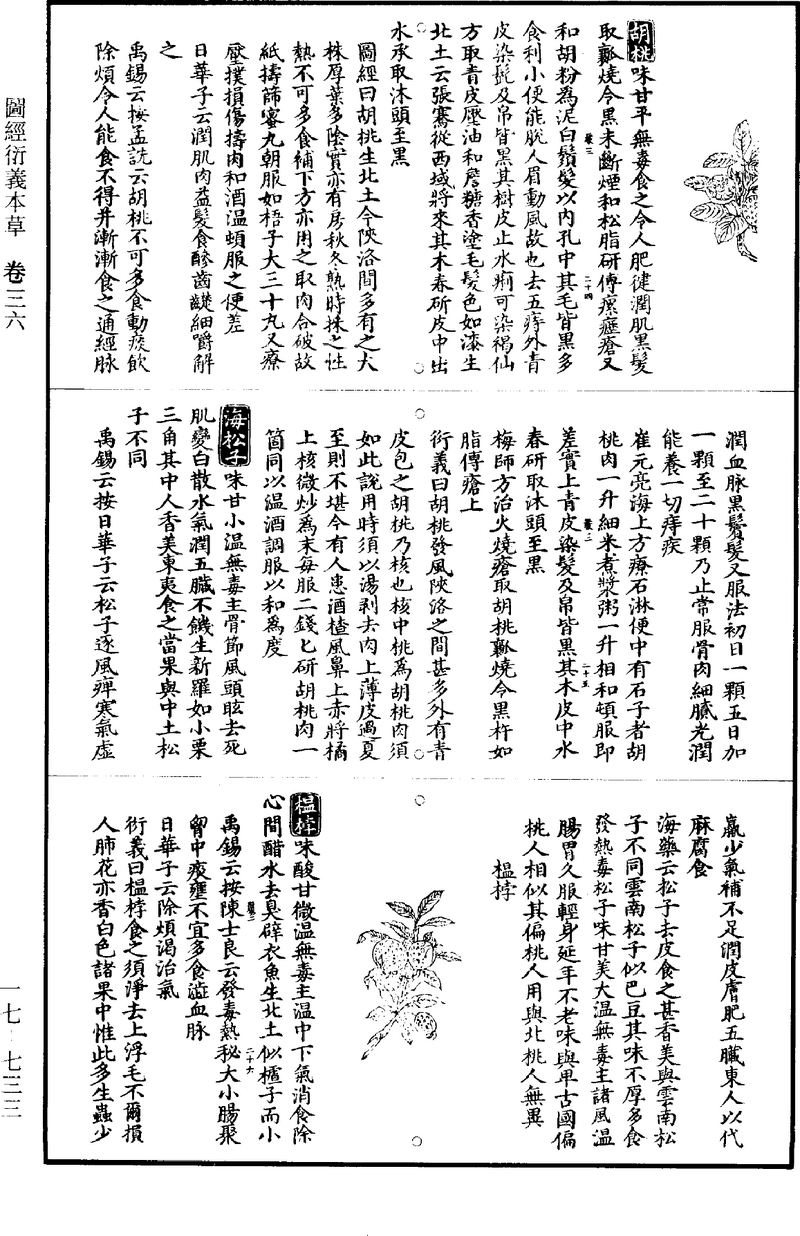 胡桃味甘平無毒食之令人肥健潤肌黑髮
取瓤燒令黑未斷煙和松脂研傅瘰癧瘡又
和胡粉為泥白鬚髮以內孔中其毛皆黑多
食利小便能脫人眉動風故也去五痔外青
皮染髭及帛皆黑其樹皮止水痢可染褐仙
方取青皮壓油和詹糖香塗毛髮色如漆生
北土云張騫從西域將來其木春斫皮中出
水承取沐頭至黑
圖經曰胡桃生北土今陝洛間多有之大
株厚葉多陰實亦有房秋冬熟時採之性
熱不可多食補下方亦用之取肉合破故
紙擣篩蜜丸朝服如梧子大三十丸又療
壓撲損傷擣肉和酒溫頓服之便差
日華子云潤肌肉益髮食酸齒齼細嚼解
之
禹錫云按孟詵云胡桃不可多食動痰飲
除煩令人能食不得并漸漸食之通經脉
潤血脉黑鬢髮又服法初日一顆五日加
一顆至二十顆乃止常服骨肉細膩光潤
能養一切痔疾
崔元亮海上方療石淋便中有石子者胡
桃肉一升細米煮漿粥一升相和頓服即
差實上青皮染髮及帛皆黑其木皮中水
春研取沐頭至黑
梅師方治火燒瘡取胡桃瓤燒令黑杵如
脂傅瘡上
衍義曰胡桃發風陝洛之間甚多外有青
皮包之胡桃乃核也核中桃為胡桃肉須
如此說用時須以湯剥去肉上薄皮過夏
至則不堪今有人患酒楂風鼻上赤將橘
上核微炒為末每服二錢匕研胡桃肉一
箇同以温酒調服以和為度
海松子味甘小温無毒主骨節風頭眩去死
肌變白散水氣潤五臓不饑生新羅如小栗
三角其中人香美東夷食之當果與中土松
子不同
禹錫云按日華子云松子逐風痺寒氣虛
羸少氣補不足潤皮膚肥五臓東人以代
麻腐食
海藥云松子去皮食之甚香美與雲南松
子不同雲南松子似巴豆其味不厚多食
發熱毒松子味甘美大温無毒主諸風温
腸胃久服輕身延年不老味與卑古國偏
桃人相似其偏桃人用與北桃人無異
榲桲
榲桲味酸甘微温無毒主温中下氣消食除
心間醋水去臭辟衣魚生北土似樝子而小
禹錫云按陳士良云發毒熱秘大小腸聚
胷中痰壅不宜多食澁血脉
日華子云除煩渴治氣
衍義曰榲桲食之須淨去上浮毛不爾損
人肺花亦香白色諸果中惟此多生蟲少
圖經衍義本草 卷三六
一七-七三三